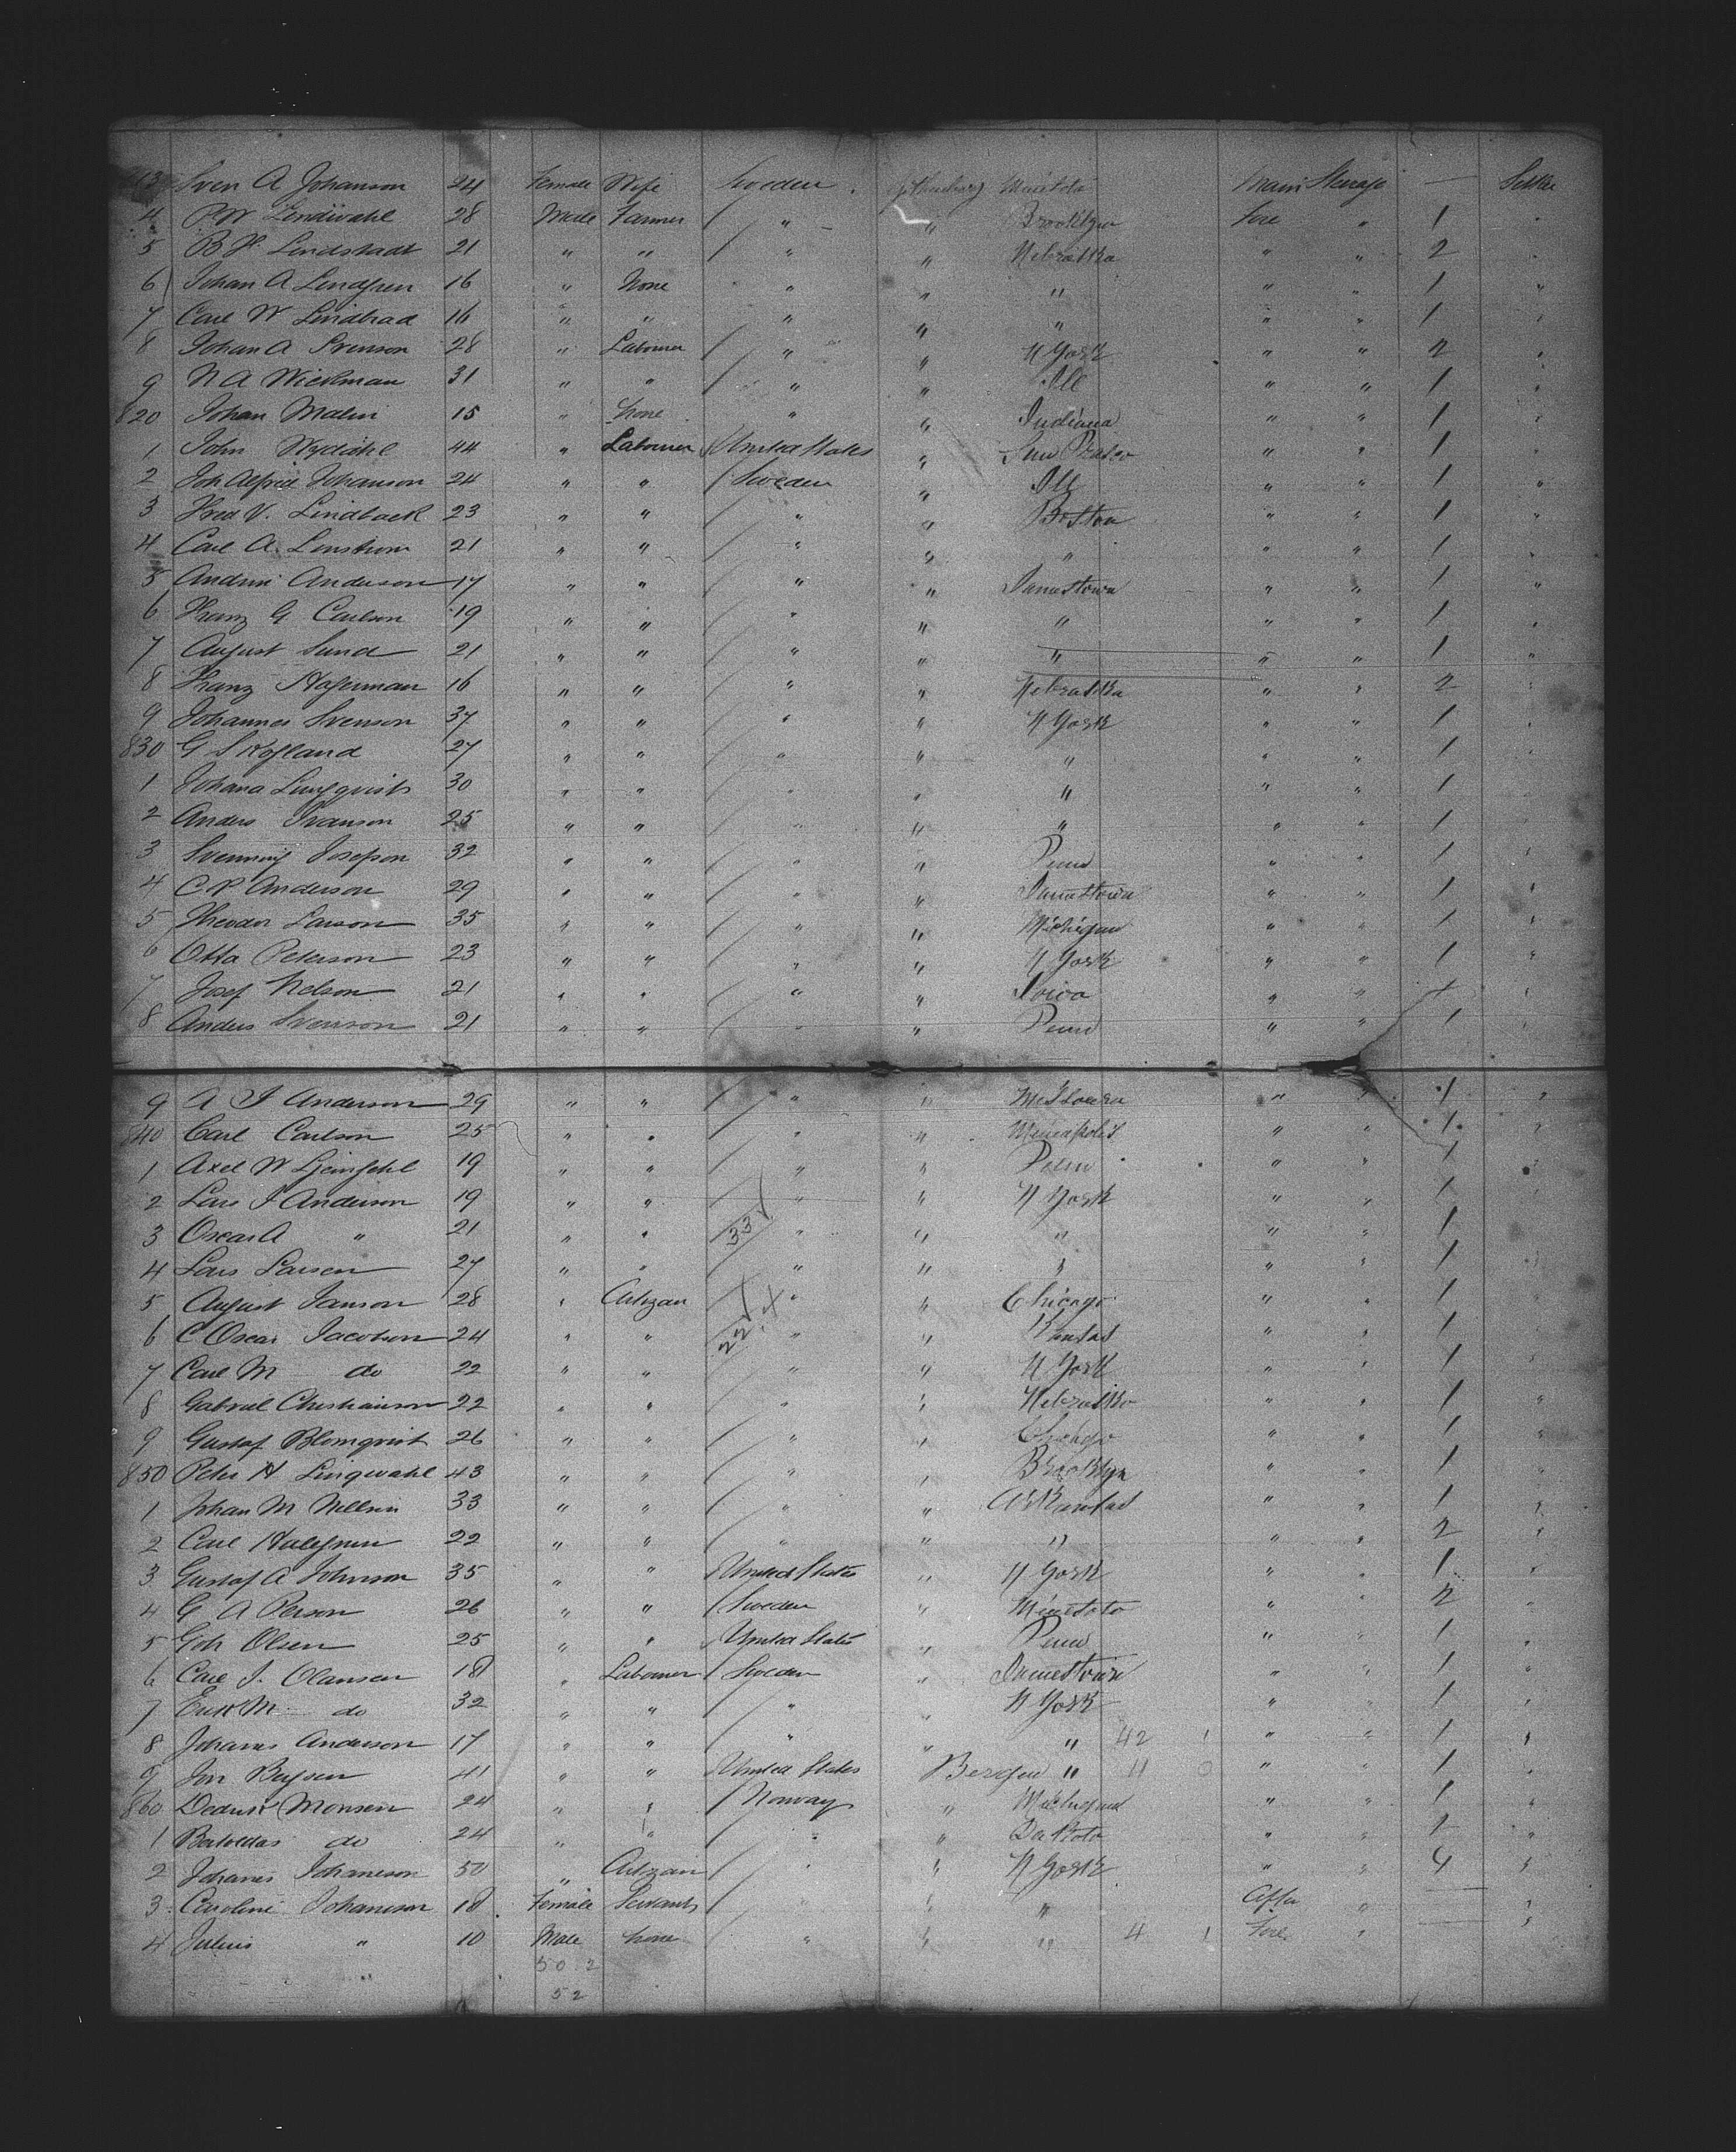 13 Sven A Johanson 24 Female Wife Sweden Gothenburg Minesota Main Steerage — Settler
4 P W Lindwahl 28 Male Farmer / " " Brooklyn Fore " 1 "
5 B H Lindstadt 21 " " / " " Nebraska " " 2 "
6 Johan A Lindgren 16 " None " " " " " 1 "
7 Carl W Lindblad 16 " " " " " " " 1 "
8 Johan A Svenson 28 " Labourer / " " N York " " 2 "
9 N A Wickman 31 " " / " " Ill " " 1 "
820 Johan Malin 15 " None " " Indiana " " 1 "
1 John 44 " Labourer / United States " " " 1 "
2 Joh Alfred Johanson 24 " " / Sweden " Ill " " 1 "
3 Fred V. Lindback 23 " " / " " Boston " " 1 "
4 Carl A. Lenstrom 21 " " / " " " " " 1 "
5 Anderson 17 " " / " " Jamestown " " 1 "
6 Franz G Carlson 19 " " / " " " " " 1 "
7 August Lund 21 " " / " " " " " 1 "
8 Franz Hagerman 16 " " / " " Nebraska " " 2 "
9 Johannes Svenson 37 " " / " " N York " " 1 "
830 G Skogland 27 " " / " " " " " 1 "
1 Johana Lungqvist 30 " " / " " " " " 1 "
2 Anders Svanson 25 " " / " " " " " 1 "
3 Svenning Josefson 32 " " / " " Penn " " 1 "
4 C P Anderson 29 " " / " " Jamestown " " 1 "
5 Theodor Larson 35 " " / " " Michigan " " 1 "
6 Otto Peterson 23 " " / " " N York " " 1 "
7 Josef Nelson 21 " " / " " Iowa " " 1 "
8 Anders Svenson 21 " " / " " Penn " " 1 "
9 A J Anderson 29 " " / " " " " 1 "
840 Carl Carlson 25 " " / " " Mineapolis " " 1 "
1 Axel W 19 " " / " " Penn " " 1 "
2 Lars J Anderson 19 " " / " " N York " " 1 "
3 Oscar A " 21 " " 33 " " " " " 1 "
4 Lars Larsen 27 " " / " " " " " 1 "
5 August Janson 28 " Artizan / " " Chicago " " 1 "
6 C Oscar Jacobson 24 " " 22 " " Kansas " " 1 "
7 Carl M do 22 " " / " " N York " " 1 "
8 Gabriel Christianson 22 " " / " " Nebraska " " 1 "
9 Gustaf Blomqvist 26 " " / " " Chicago " " 1 "
850 Peter H Lingwahl 43 " " / " " Brooklyn " " 1 "
1 Johan M Nillson 33 " " / " " Arkansas " " 1 "
2 Carl Halgren 22 " " / " " " " " 2 "
3 Gustaf A Johnson 35 " " United States " N York " " 1 "
4 G A Person 26 " " / Sweden " Minesota " " 2 "
5 Olsen 25 " " / United States " Penn " " 1 "
6 Carl J. Olausen 18 " Labourer / Sweden " Jamestown " " 1 "
7 Erik M do 32 " " / " " N York " " 1 "
8 Johannes Anderson 17 " " / " " " 42 1 " " 1 "
9 Jon 41 " " United States Bergen " 11 0 " " 1 "
860 Monsen 24 " " / Norway " Michigan " " 1 "
1 do 24 " " / " " Dakota " " 1 "
2 Johannes Johaneson 50 " Artizan / " " N York " " 4 "
3 Caroline Johaneson 18 Female Servant / " " " After " — "
4 Julius " 10 Male None / " " " 4 1 Fore " — "
50.2
52